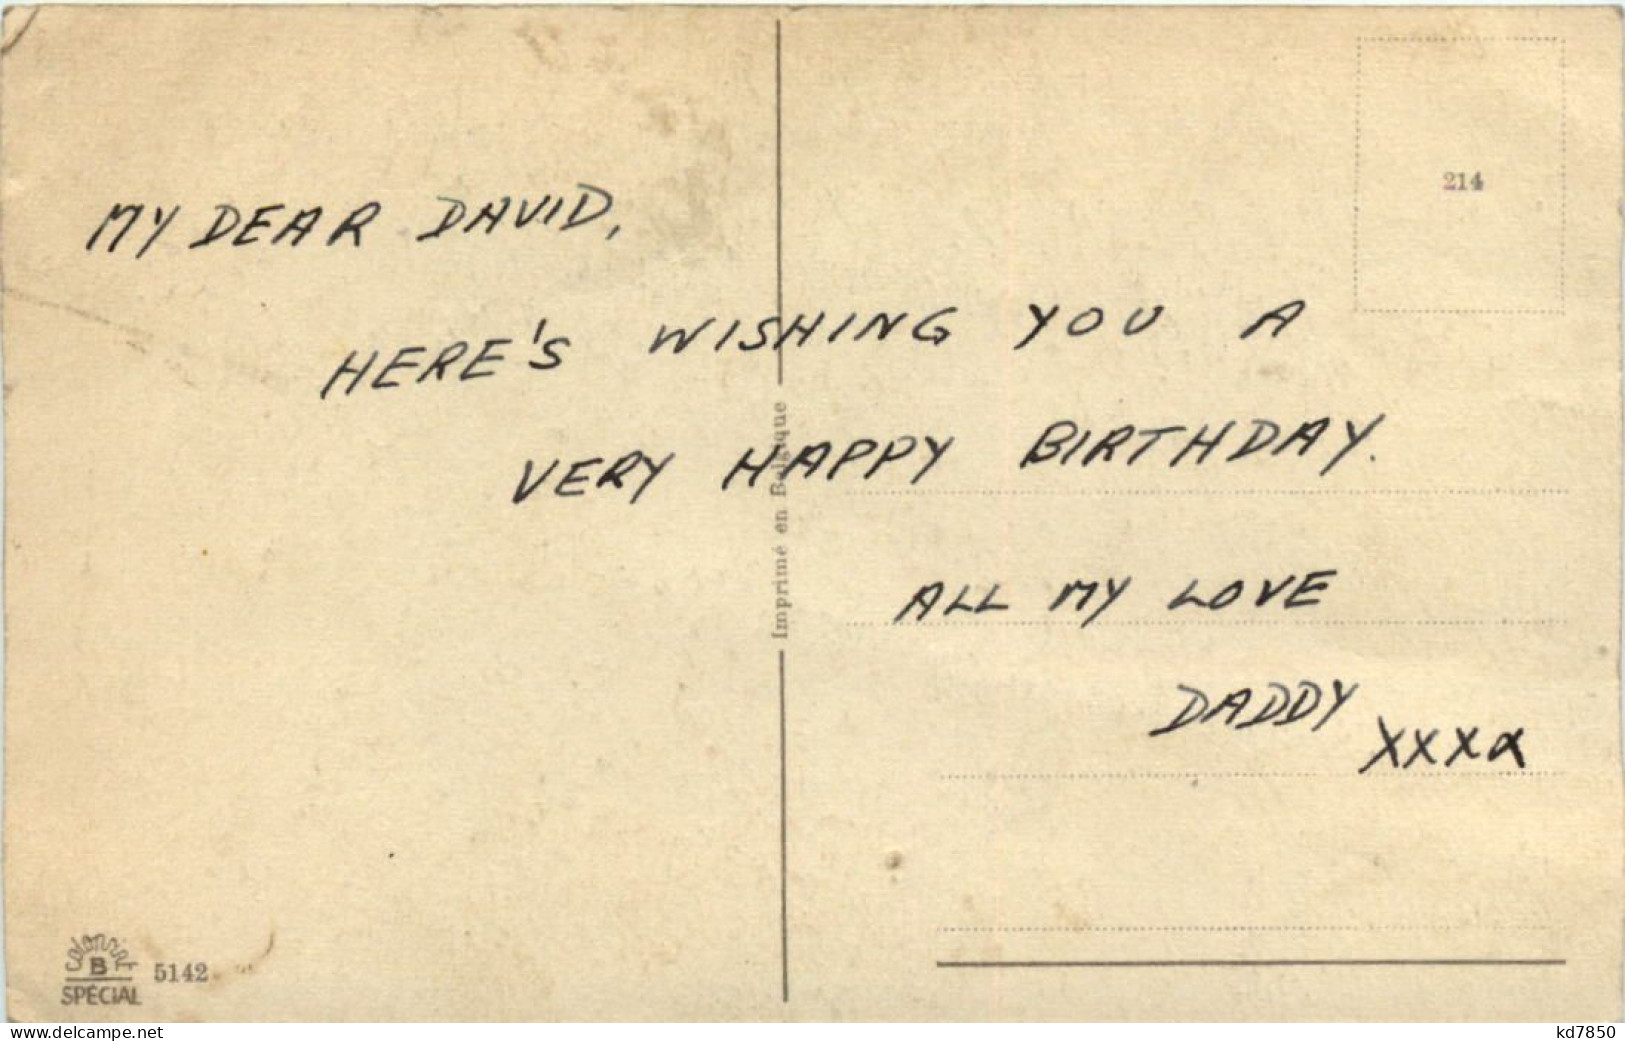 214
MY DEAR DAVID,
HERE'S WISHING YOU A
VERY HAPPY BIRTHDAY.
ALL MY LOVE
DADDY
XXXX
Imprimé en Belgique
colorprint
B
SPÉCIAL
5142
www.delcampe.net
kd7850